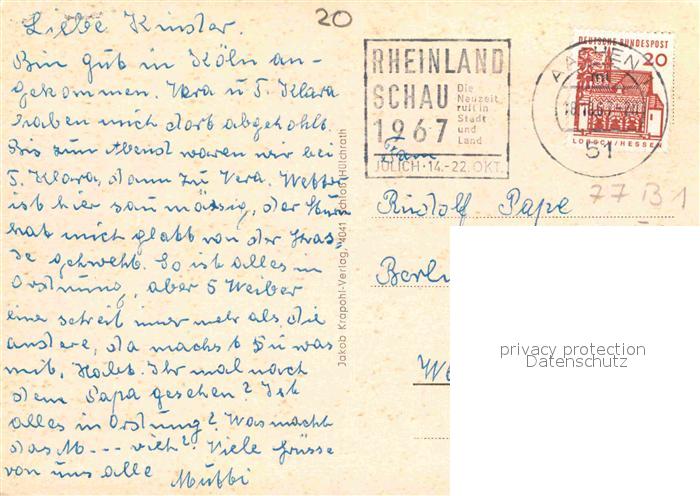 Liebe Kinder.
20
Bin gut in Köln an-
gekommen. Vera u T. Klara
haben mich dort abgehohlt.
Bis zum Abend waren wir bei
T. Klara, dann zu Vera. Wetter
ist hier saumässig, der Sturm
hat mich glatt von der Stras-
se gehweht. So ist alles in
Ordnung, aber 5 Weiber
eine schreit immer mehr als die
andere, da machst Du was
mit. Habt Ihr mal nach
dem Papa gesehen? Ist
alles in Ordnung? Was macht
das M--- vieh? Viele Grüsse
von uns alle Mutti
Jakob Krapohl-Verlag, 4041 Schloß Hülchrath
RHEINLAND
SCHAU
1967
Die
Neuzeit
ruft in
Stadt
und
Land
JÜLICH·14.-22.OKT.
AACHEN
51
DEUTSCHE BUNDESPOST
20
LORSCH/HESSEN
77B1
Fam
Rudolf Pape
Berlin
privacy protection
Datenschutz